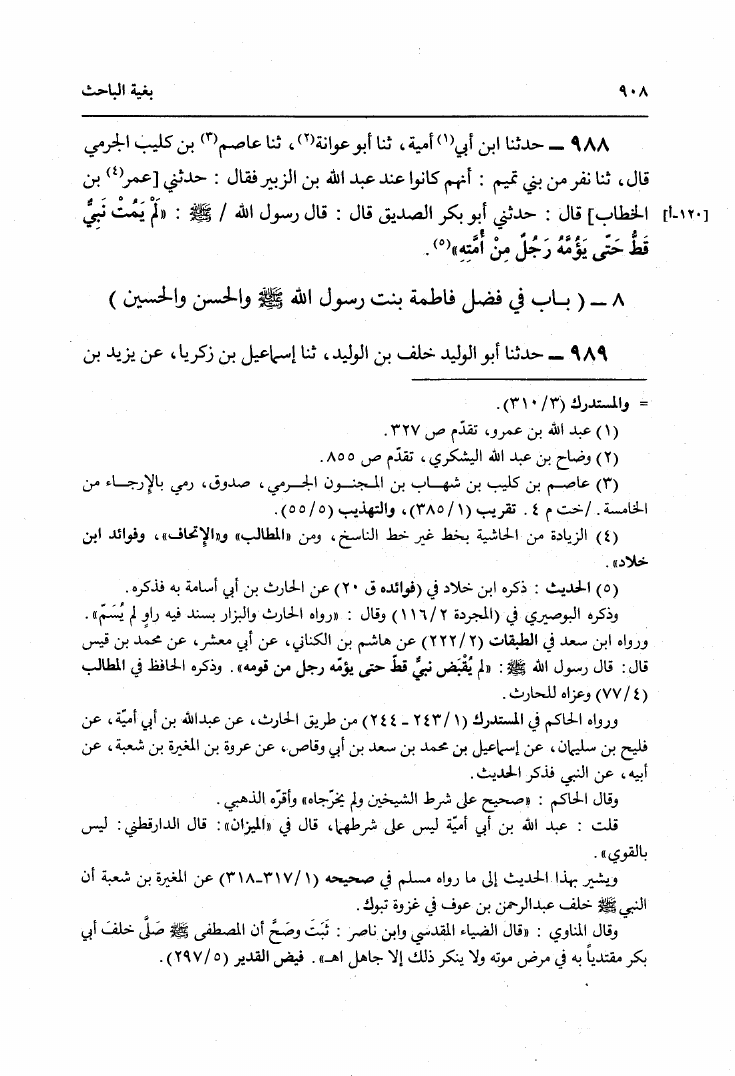 ٩٠٨ بغية الباحث
٩٨٨ ــ حدثنا ابن أبي(١) أمية، ثنا أبو عوانة(٢)، ثنا عاصم(٣) بن كليب الجرمي
قال، ثنا نفر من بني تميم : أنهم كانوا عند عبد الله بن الزبير فقال : حدثني [عمر(٤) بن
[١٢٠-أ] الخطاب] قال : حدثني أبو بكر الصديق قال : قال رسول الله / ﷺ : «لَمْ يَمُتْ نَبِيٌّ
قَطُّ حَتَّى يَؤُمَّهُ رَجُلٌ مِنْ أُمَّتِهِ»(٥).
٨ ــ ( بــاب في فضل فاطمة بنت رسول الله ﷺ والحسن والحسين )
٩٨٩ ــ حدثنا أبو الوليد خلف بن الوليد، ثنا إسماعيل بن زكريا، عن يزيد بن
= والمستدرك (٣١٠/٣).
(١) عبد الله بن عمرو، تقدّم ص ٣٢٧.
(٢) وضاح بن عبد الله اليشكري، تقدّم ص ٨٥٥.
(٣) عاصم بن كليب بن شهــاب بن المـجنــون الجـرمي، صدوق، رمي بالإرجــاء من
الخامسة. /خت م ٤. تقريب (٣٨٥/١)، والتهذيب (٥٥/٥).
(٤) الزيادة من الحاشية بخط غير خط الناسخ، ومن «المطالب» و«الإتحاف»، وفوائد ابن
خلاد».
(٥) الحديث : ذكره ابن خلاد في (فوائده ق ٢٠) عن الحارث بن أبي أسامة به فذكره.
وذكره البوصيري في (المجردة ١١٦/٢) وقال : «رواه الحارث والبزار بسند فيه راوٍ لم يُسَمّ».
ورواه ابن سعد في الطبقات (٢٢٢/٢) عن هاشم بن الكناني، عن أبي معشر، عن محمد بن قيس
قال: قال رسول الله ﷺ: «لم يُقْبَض نبيٌّ قطّ حتى يؤمّه رجل من قومه». وذكره الحافظ في المطالب
(٧٧/٤) وعزاه للحارث.
ورواه الحاكم في المستدرك (٢٤٣/١ ـ ٢٤٤) من طريق الحارث، عن عبدالله بن أبي أميّة، عن
فليح بن سليمان، عن إسماعيل بن محمد بن سعد بن أبي وقاص، عن عروة بن المغيرة بن شعبة، عن
أبيه، عن النبي فذكر الحديث.
وقال الحاكم : «صحيح على شرط الشيخين ولم يخرّجاه» وأقرّه الذهبي.
قلت : عبد الله بن أبي أميّة ليس على شرطهما، قال في «الميزان»: قال الدارقطني: ليس
بالقوي».
ويشير بهذا الحديث إلى ما رواه مسلم في صحيحه (٣١٧/١-٣١٨) عن المغيرة بن شعبة أن
النبي ﷺ خلف عبدالرحمن بن عوف في غزوة تبوك.
وقال المناوي : «قال الضياء المقدسي وابن ناصر : ثَبَتَ وصَحَّ أن المصطفى ﷺ صَلَّى خلفَ أبي
بكر مقتدياً به في مرض موته ولا ينكر ذلك إلا جاهل اهـ». فيض القدير (٢٩٧/٥).